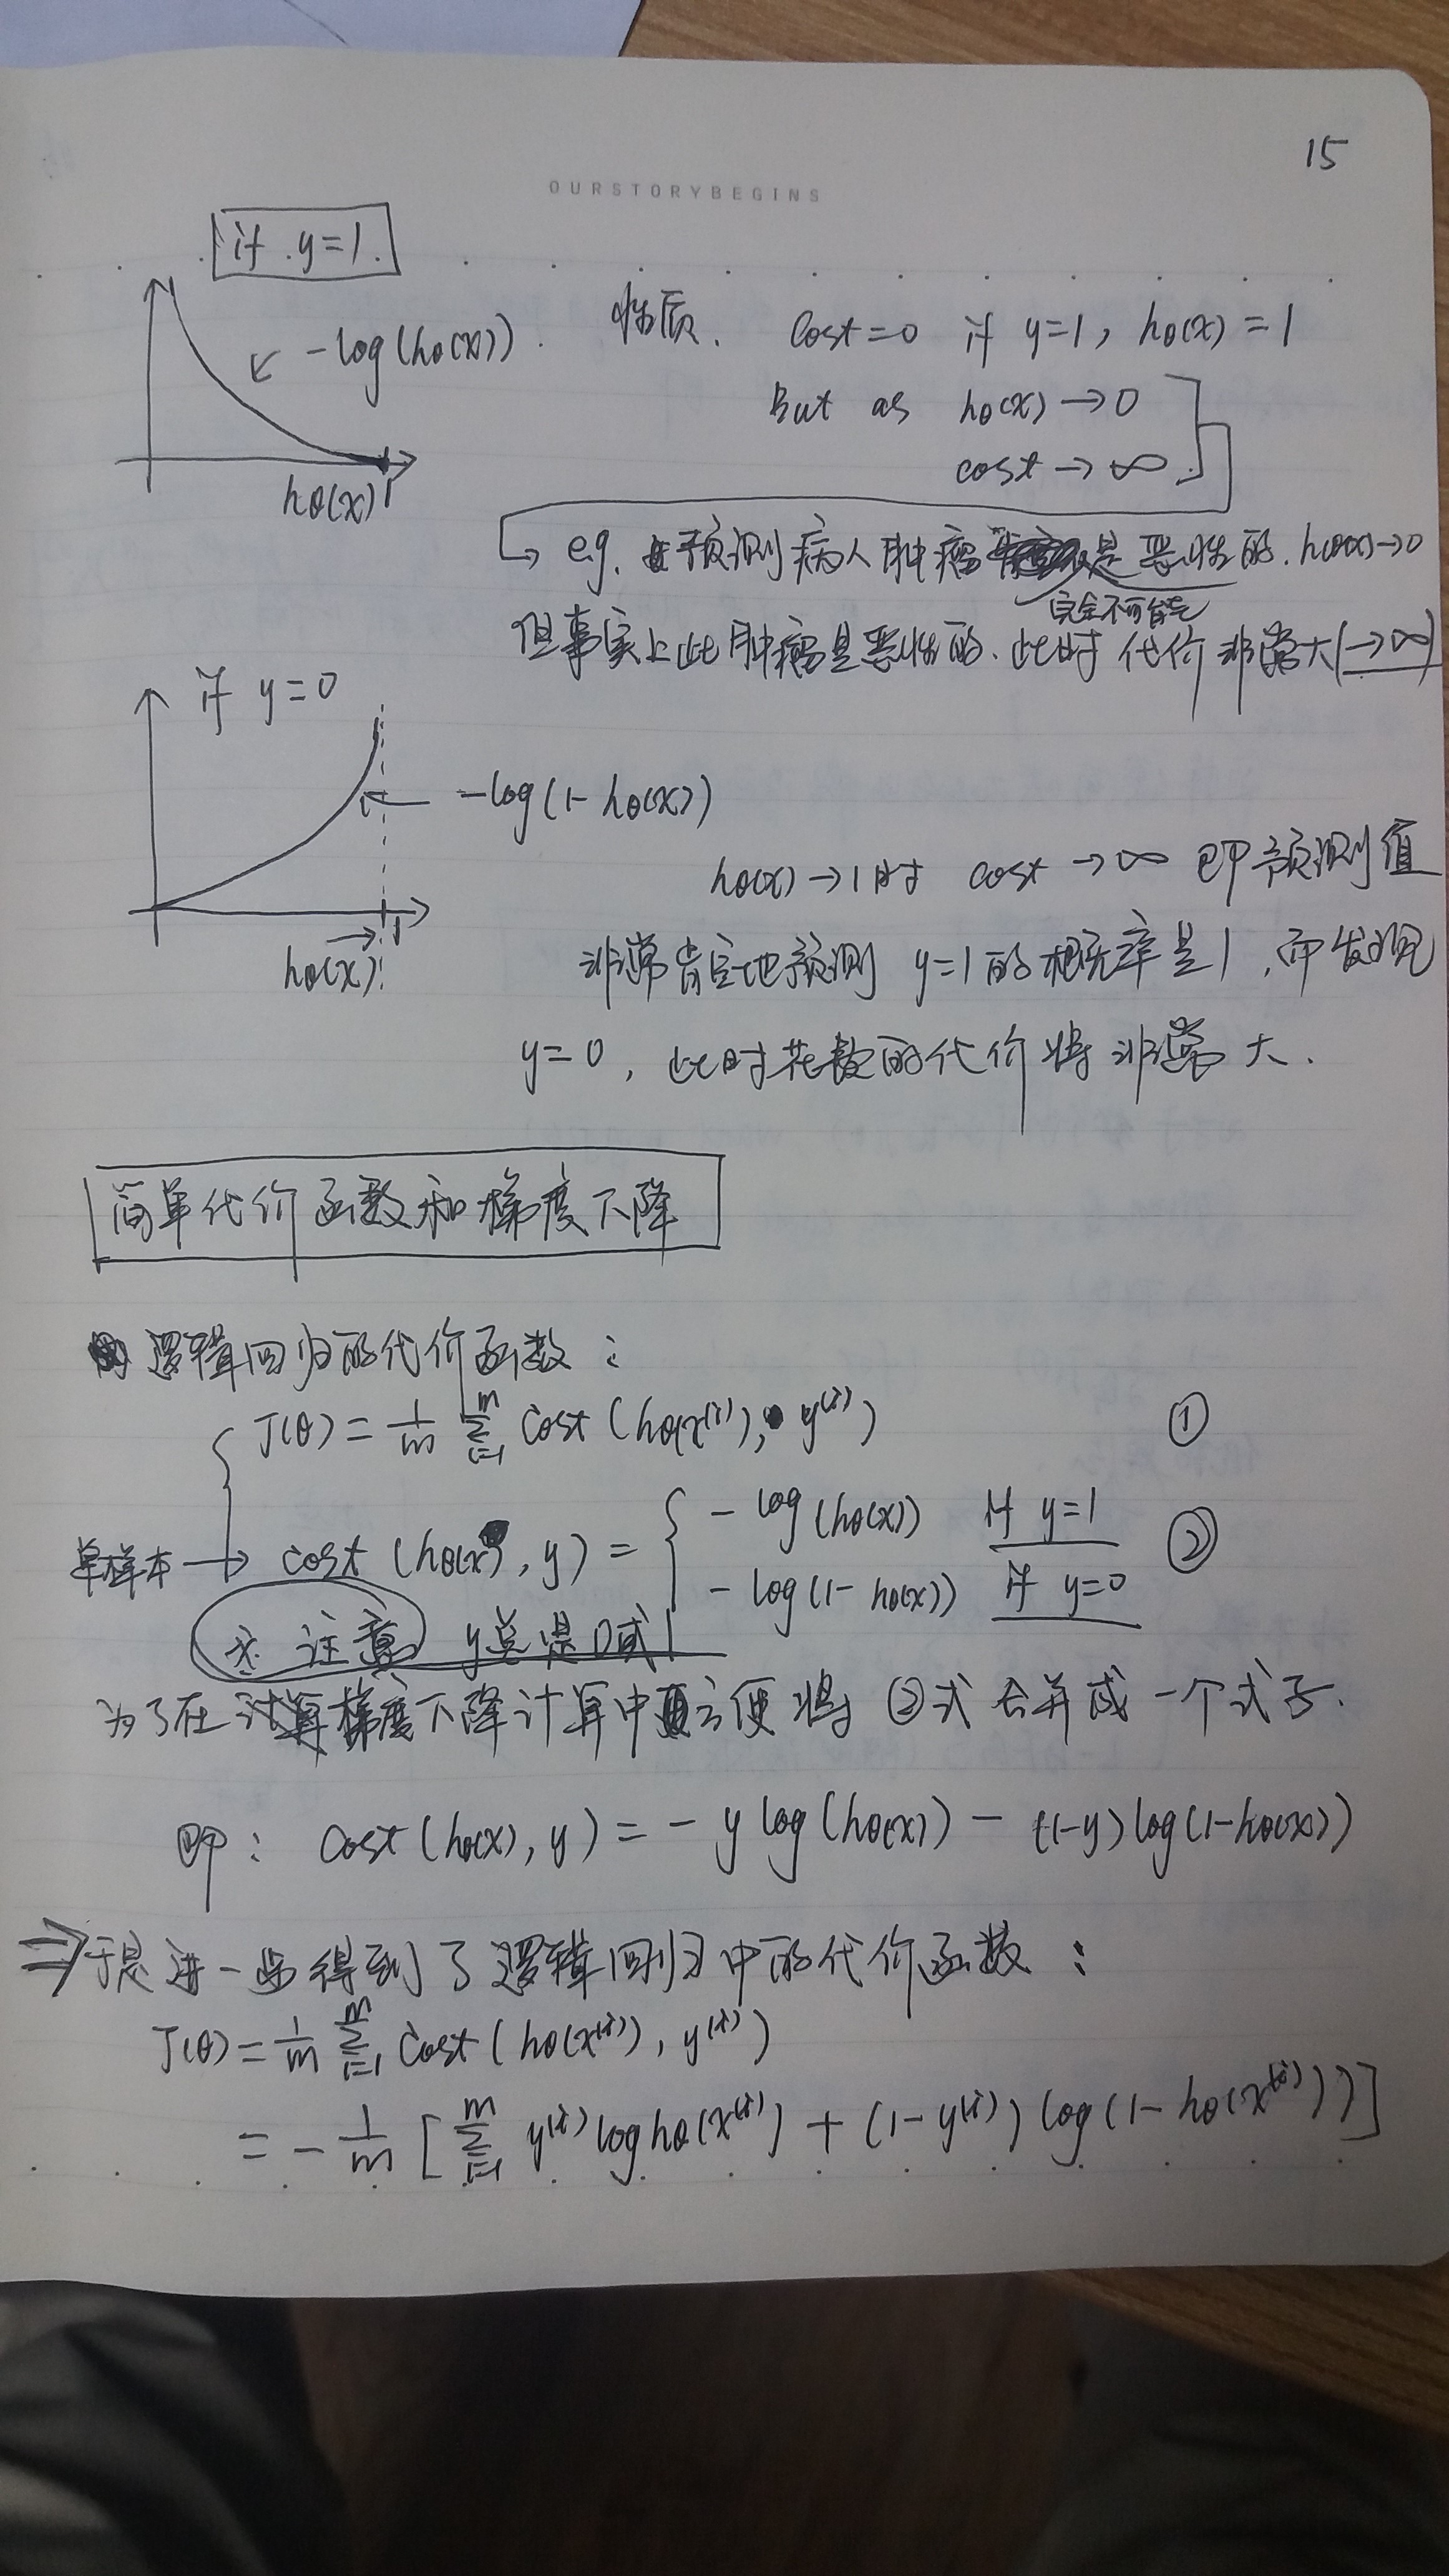 15
OURSTORYBEGINS
if y=1.
-log(hθ(x)).
hθ(x) 1
性质. Cost=0 if y=1, hθ(x)=1
But as hθ(x)→0
cost→∞
e.g. 预测病人肿瘤是恶性的. hθ(x)→0
完全不可能
但事实上此肿瘤是恶性的. 此时代价非常大(→∞)
if y=0
-log(1-hθ(x))
hθ(x) 1
hθ(x)→1时 cost→∞ 即预测值
非常肯定地预测 y=1的概率是1,而发现
y=0, 此时花数的代价将非常大.
简单代价函数和梯度下降
逻辑回归的代价函数:
J(θ) = 1/m Σ_{i=1}^{m} Cost(hθ(x^(i)), y^(i)) ①
单样本→ cost(hθ(x), y) = { -log(hθ(x)) if y=1 ②
-log(1-hθ(x)) if y=0
※ 注意 y总是0或1
为了在计算梯度下降计算中方便将②式合并成一个式子.
即: Cost(hθ(x), y) = -y log(hθ(x)) - (1-y) log(1-hθ(x))
⇒于是进一步得到了逻辑回归中的代价函数:
J(θ) = 1/m Σ_{i=1}^{m} Cost(hθ(x^(i)), y^(i))
= -1/m [Σ_{i=1}^{m} y^(i) log hθ(x^(i)) + (1-y^(i)) log(1-hθ(x^(i)))]